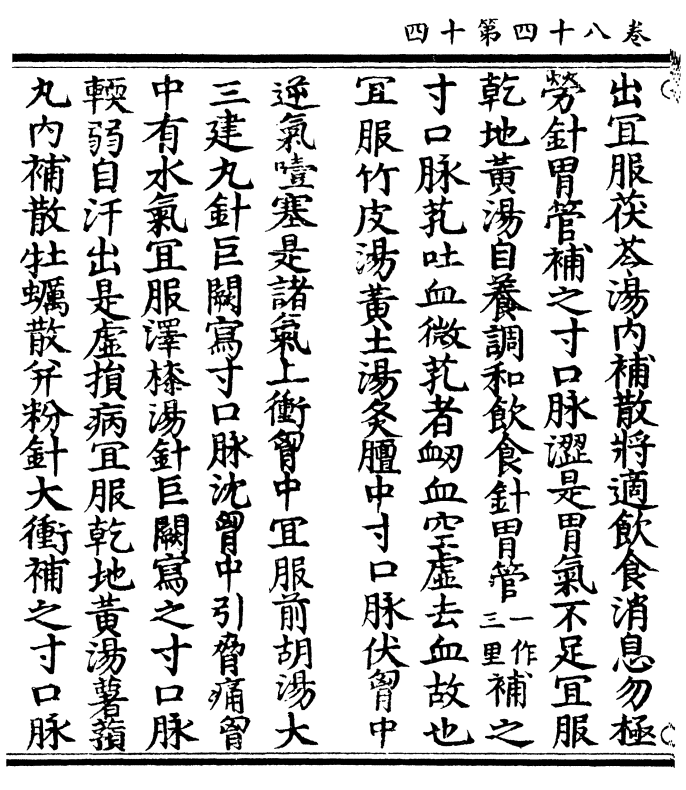 卷八十四第十四
出冝服茯苓湯内補散將適飲食消息勿極
勞針胃管補之寸口脉澀是胃氣不足冝服
乾地黃湯自養調和飲食針胃管一作三里補之
寸口脉芤吐血微芤者衂血空虛去血故也
冝服竹皮湯黃土湯灸膻中寸口脉伏胷中
逆氣噎塞是諸氣上衝胷中冝服前胡湯大
三建丸針巨闕寫寸口脉沈胷中引脅痛胷
中有水氣冝服澤漆湯針巨闕寫之寸口脉
輭弱自汗出是虛損病冝服乾地黃湯薯蕷
丸内補散牡蠣散并粉針大衝補之寸口脉